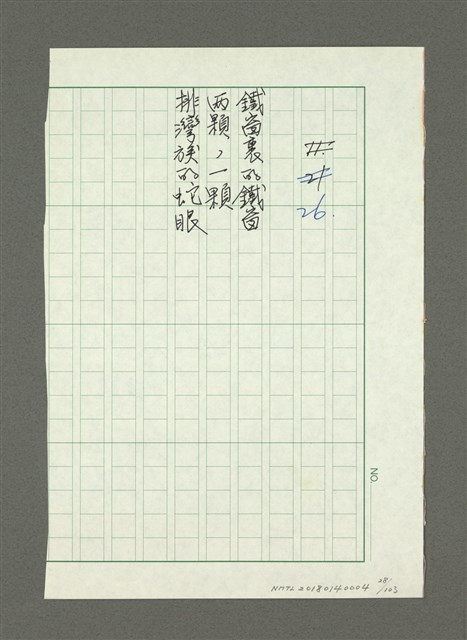 26.
鐵齒裏的鐵齒
两顆，一顆
排灣族的蛇眼
NO.
NMTL20180140004
28/103